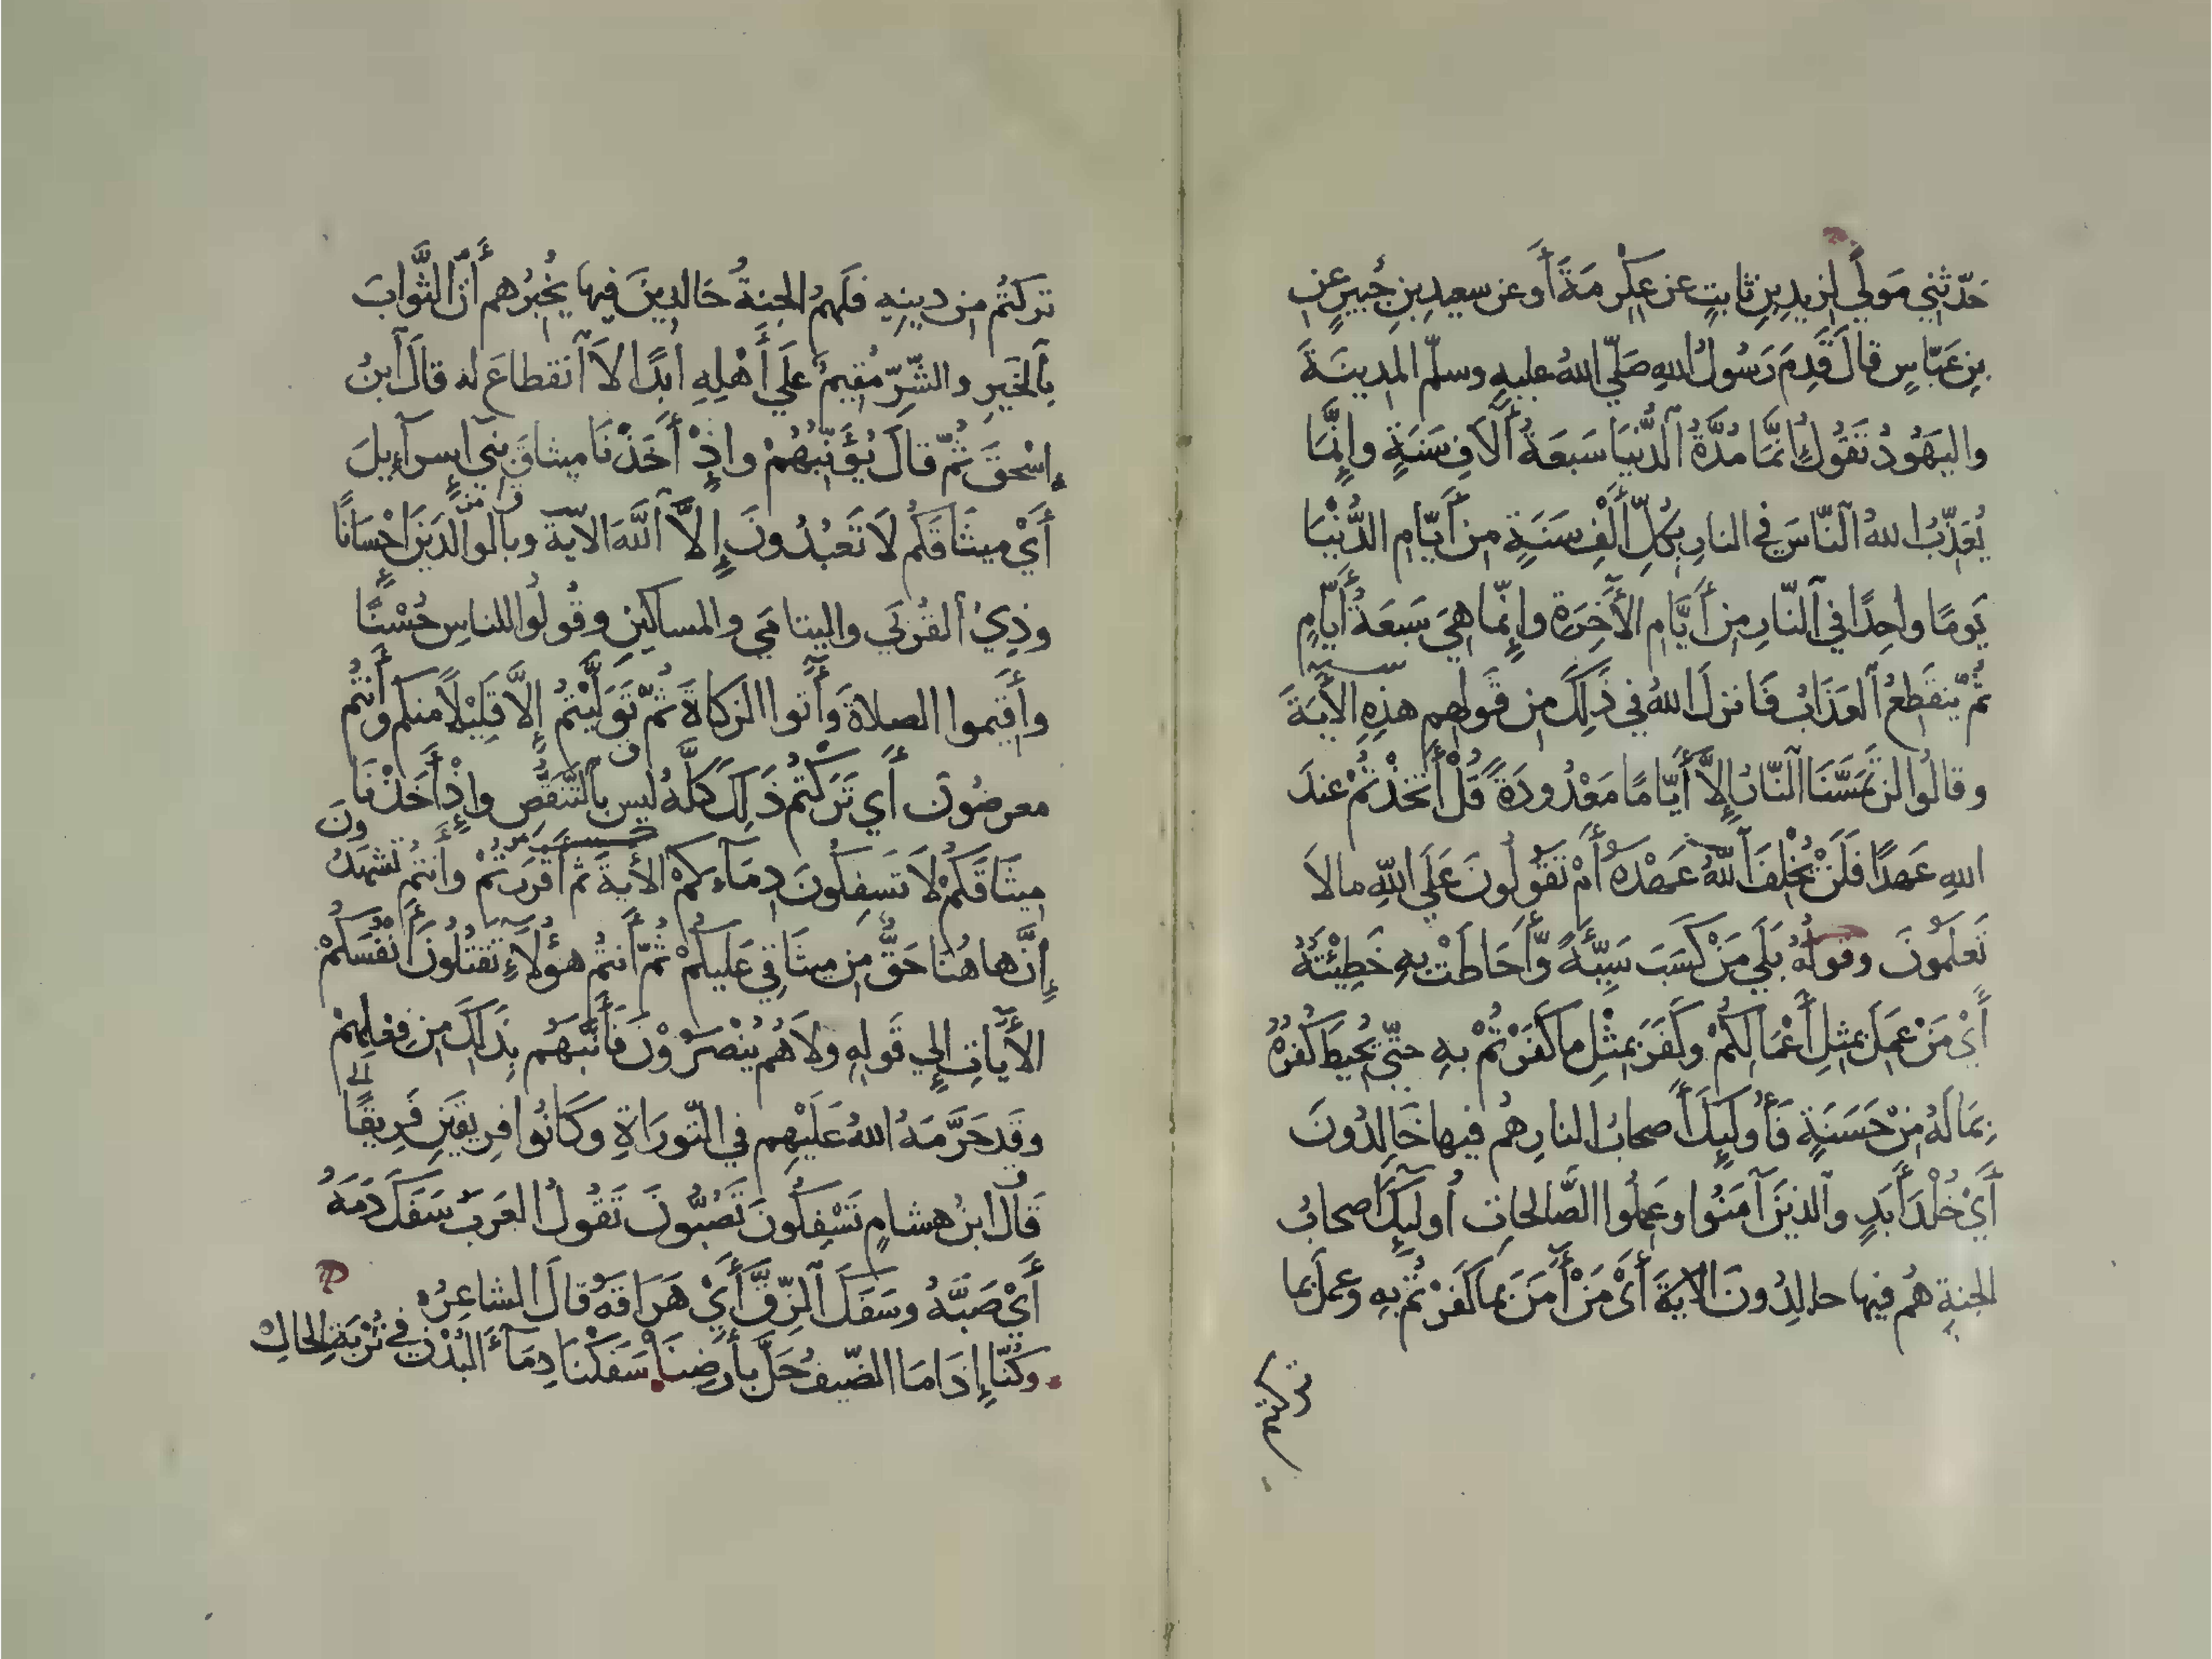 حَدّثني مَولًي لزيدِ بنِ ثابتٍ عن عِكْرِمَةَ أَو عن سعيدِ بنِ جُبيرٍ عن
بنِ عَبّاسٍ قالَ قَدِمَ رَسُولُ اللهِ صَلّي اللهُ عليهِ وسلّم المدينَةَ
واليَهُودُ تَقُولُ إنّمَا مُدَّةُ ٱلدُّنيَا سَبعَةُ آلَافِ سَنَةٍ وإنَّمَا
يُعَذِّبُ اللهُ ٱلنَّاسَ في النارِ بِكُلِّ أَلْفِ سَنَةٍ من أَيّامِ الدُّنْيَا
يَومًا واحِدًا في ٱلنّارِ مِن أَيَّامِ الأَخِرَةِ وإنّما هِيَ سَبعَةُ أَيّامٍ
ثُمّ يَنقَطِعُ ٱلعَذَابُ فَانزلَ اللهُ في ذَلِكَ من قَولِهم هذِهِ الأَيَةَ
وقالُوا لن تَمَسَّنَا ٱلنّارُ إِلاَّ أَيَّامًا مَعْدُودَةً قُلْ أَتَّخَذْتُمْ عندَ
اللهِ عَهدًا فَلَنْ يُخْلِفَ ٱللهُ عَهْدَهُ أَمْ تَقُولُونَ عَلَي اللهِ مالاَ
تَعلَمُونَ وقولُهُ بَلَي مَنْ كَسَبَ سَيِّئَةً وَّأَحَاطَتْ بِهِ خَطِيْئَتُهُ
أَيْ مَنْ عَمِلَ بِمثلِ أَعْمَالِكُمْ وكَفَرَ بِمثْلِ ما كَفَرْتُمْ بهِ حتّي يُحيطَ كُفرُهُ
بِمَا لَهُ مِنْ حَسَنَةٍ فَأُولَيِكَ أَصحابُ النارِ هُم فيها خَالِدُونَ
أَيْ خُلْدَ أَبَدٍ والذينَ آمَنُوا وعَمِلُوا الصَّالحَاتِ أُولَيِكَ أَصحابُ
الجنةِ هُم فيها خالِدُونَ الآيَةَ أَيْ مَنْ أَمَنَ بما كَفَرْتُم بِهِ وعَمِلَ بما
تركتم
تَركتُم من دِينِهِ فَلَهمُ الجنةُ خَالدِينَ فيها يُخْبِرُهم أَنَّ الثَّوابَ
بِالخَيرِ والشّرِّ مُقِيمٌ عَلَي أَهْلِهِ أَبدًا لاَ ٱنقطاعَ له قالَ ٱبنُ
إِسْحقَ ثُمّ قالَ يُؤَنِّبُهُمْ وإذْ أَخَذْنَا ميثاقَ بَنِي إسرآءِيلَ
أَيْ ميثَاقَكُم لَا تَعْبُدُونَ إِلاَّ ٱللَّهَ الآيَةَ وبالوالدَينِ إحْسَانًا
وذِيْ ٱلقُربَي واليتامَي والمساكينِ وقُولُوا للناسِ حُسْنًا
وأَقِيموا الصلاةَ وَأَتوا الزكاةَ ثُمّ تَوَلَّيْتُمْ إِلَّا قَلِيْلًا منكم وأَنْتُم
معرضُونَ أَي تَرَكتُم ذَلِكَ كلَّهُ ليس بالتَّنَقُّصِ وإِذْ أَخَذْنَا
مِيثَاقَكُمْ لَا تَسفِكُونَ دِمَآءَكمْ الأَيةَ ثم أَقْرَرتُمْ وأَنتُم تَشهَدُونَ
إِنَّ هاهُنَا حَقٌّ من ميثَاقِي عَليكُمْ ثُمّ أَنتُم هَؤُلَاءِ تَقتُلُونَ أَنْفُسَكُمْ
الأَيَاتِ إلي قَولِهِ ولاَ هُم يُنْصَرُوْنَ فَأَنَّبَهُم بِذَلِكَ مِن فِعلِهِمْ
وقَد حَرَّمَهُ اللهُ عَلَيْهِم في التّورَاةِ وكَانُوا فريقَينِ فَرِيقًا
قَالَ ابنُ هشامٍ تَسْفِكُونَ تَصُبُّونَ تَقُولُ العَرَبُ سَفَكَ دَمَهُ
أَيْ صَبَّهُ وسَفَكَ ٱلزِّقَّ أَيْ هَرَاقَهُ قالَ الشاعِرُ
وكُنّا إِذَا مَا الضّيفُ حَلَّ بأَرضِنَا سَفَكْنَا دِمَآءَ البُدْنِ في تُرْبَةِ الحالِ